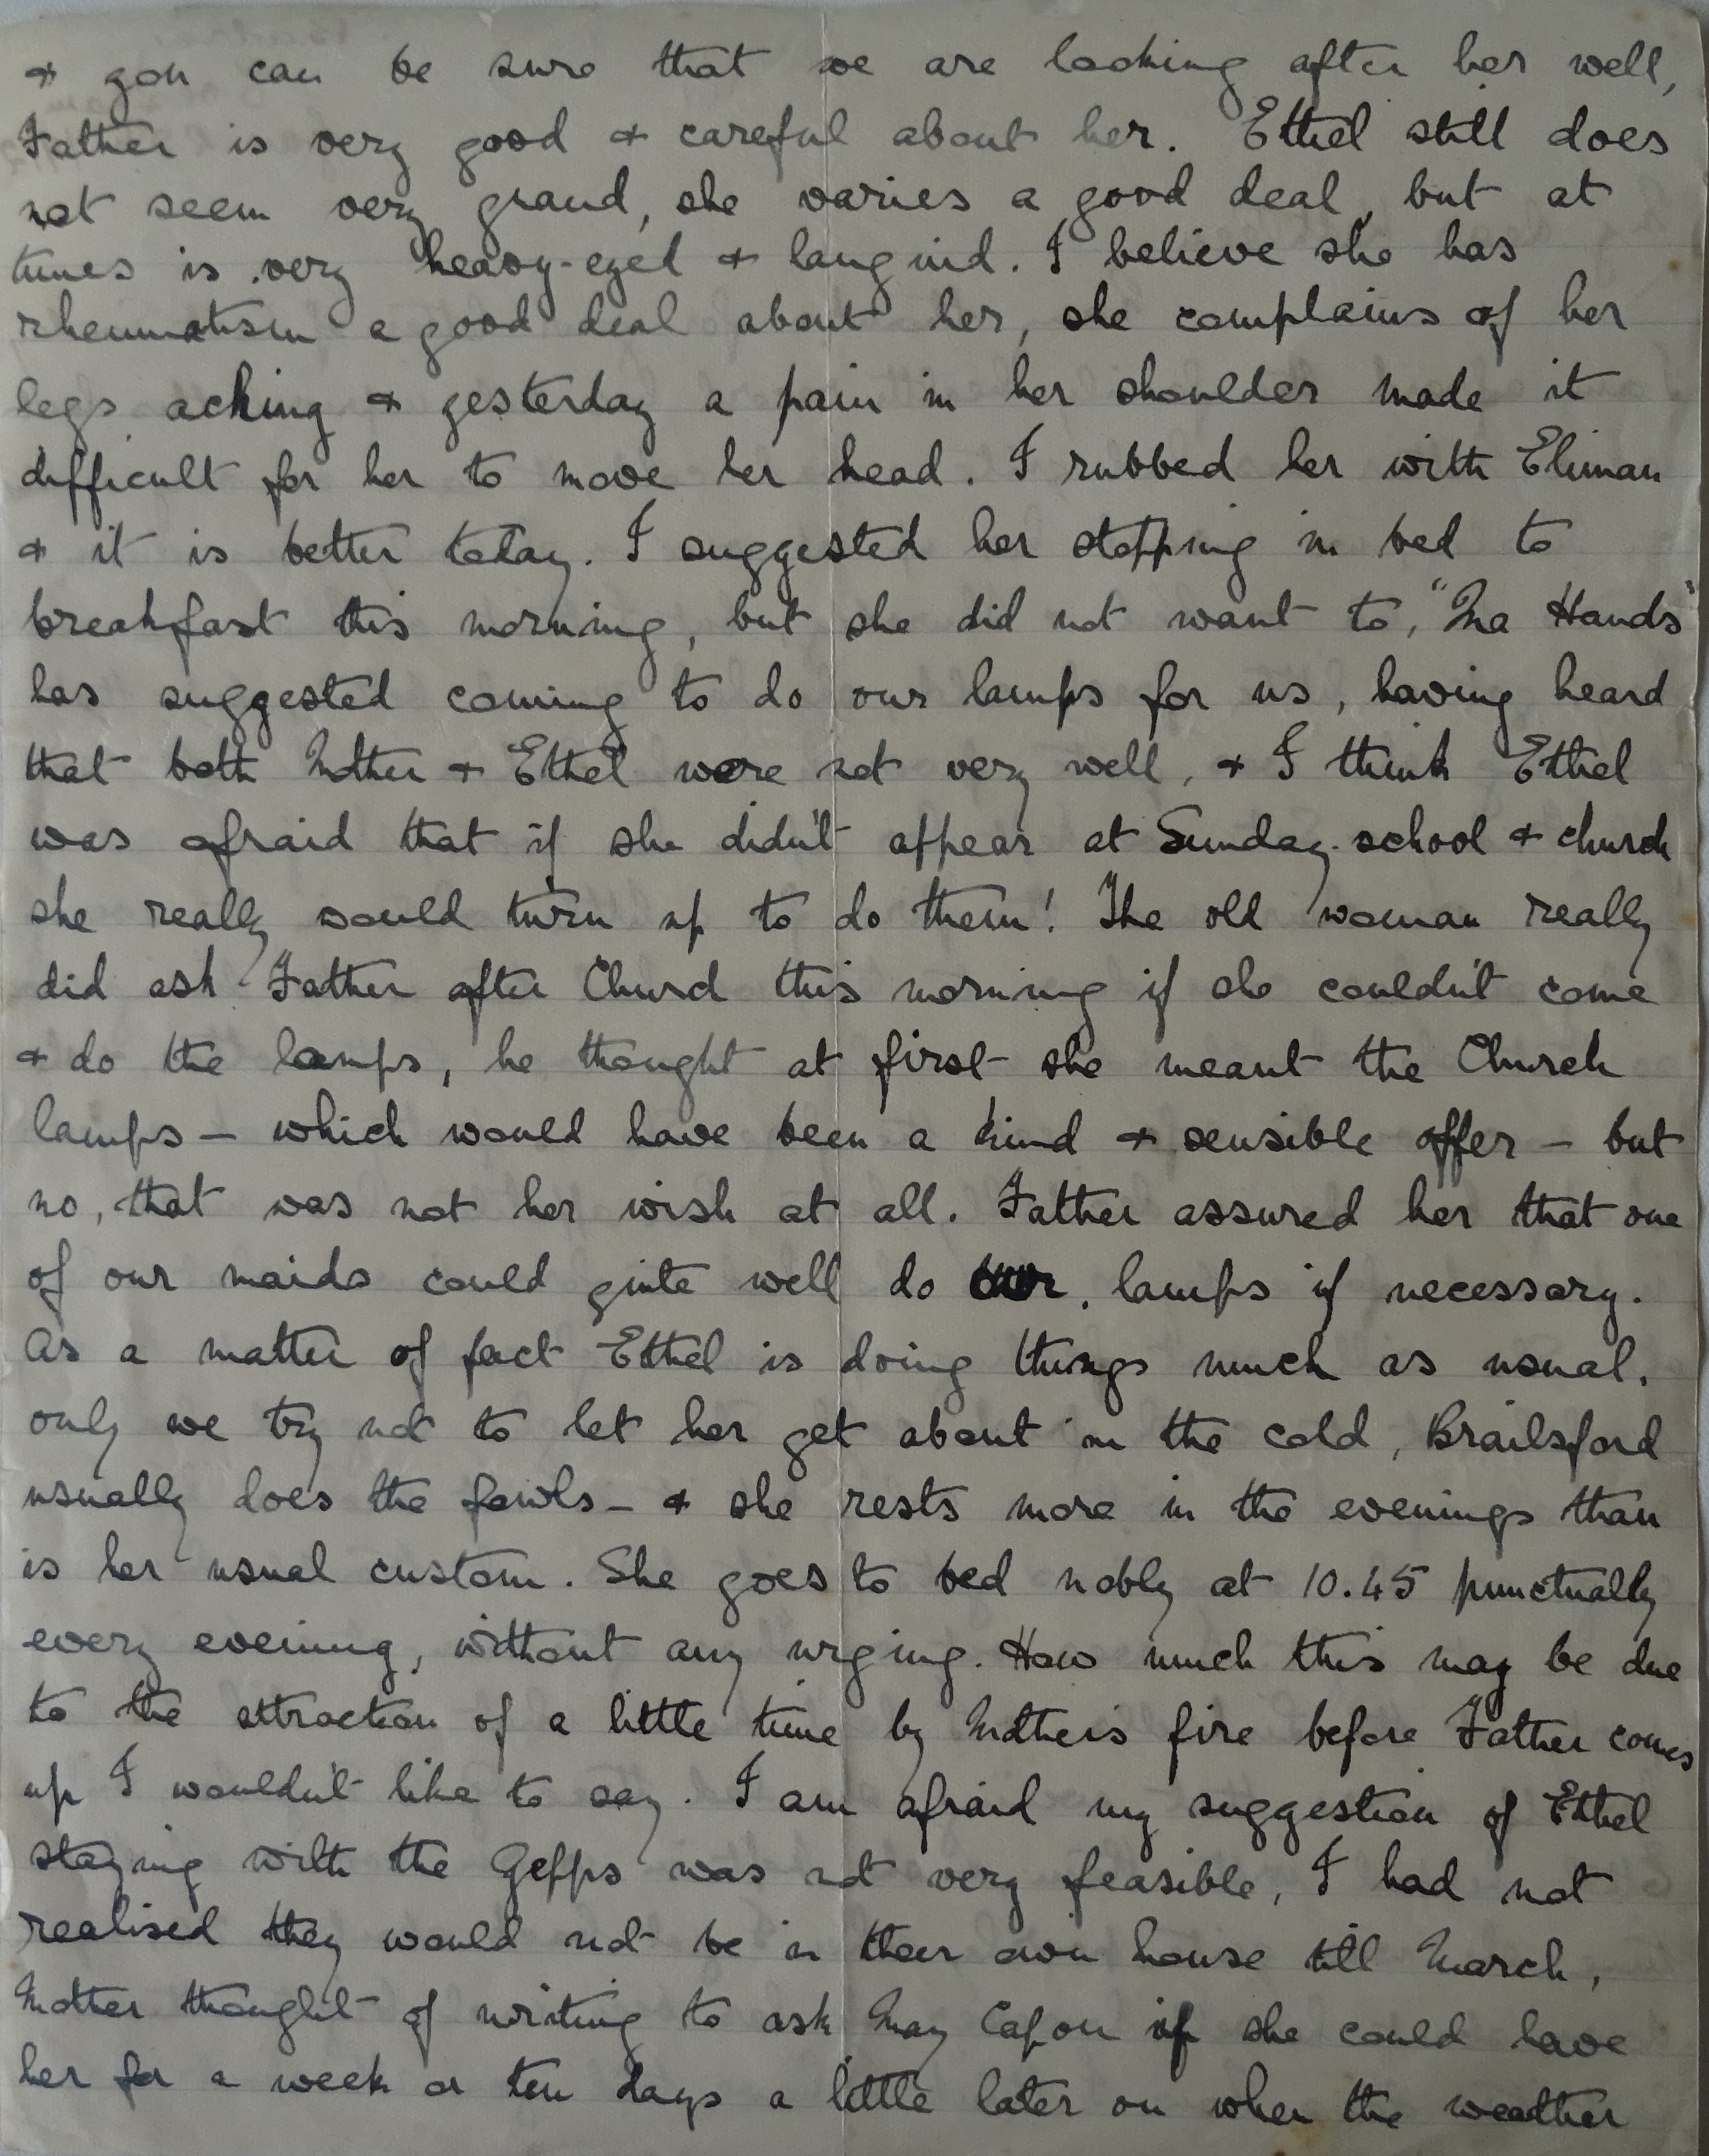 & you can be sure that we are looking after her well,
Father is very good & careful about her. Ethel still does
not seem very grand, she varies a good deal, but at
times is very heavy-eyed & languid. I believe she has
rheumatism a good deal about her, she complains of her
legs aching & yesterday a pain in her shoulder made it
difficult for her to move her head. I rubbed her with Eliman
& it is better today. I suggested her stopping in bed to
breakfast this morning, but she did not want to, "Ma Hands"
has suggested coming to do our lamps for us, having heard
that both Mother & Ethel were not very well, & I think Ethel
was afraid that if she didn't appear at Sunday-school & church
she really would turn up to do them! The old woman really
did ask Father after Church this morning if she couldn't come
& do the lamps, he thought at first she meant the Church
lamps – which would have been a kind & sensible offer – but
no, that was not her wish at all. Father assured her that one
of our maids could quite well do our lamps if necessary.
As a matter of fact Ethel is doing things much as usual,
only we try not to let her get about in the cold, Brailsford
usually does the fowls – & she rests more in the evenings than
is her usual custom. She goes to bed nobly at 10.45 punctually
every evening, without any urging. How much this may be due
to the attraction of a little time by Mother's fire before Father comes
up I wouldn't like to say. I am afraid my suggestion of Ethel
staying with the Gepps was not very feasible, I had not
realised they would not be in their own house till March,
Mother thought of writing to ask May Capon if she could have
her for a week or ten days a little later on when the weather